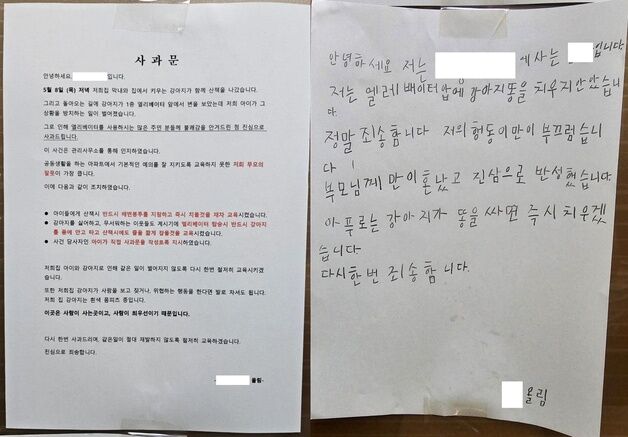 사 과 문
안녕하세요, 입니다.
5월 8일 (목) 저녁 저희집 막내와 집에서 키우는 강아지가 함께 산책을 나갔습니다.
그리고 돌아오는 길에 강아지가 1층 엘리베이터 앞에서 변을 보았는데 저희 아이가 그
상황을 방치하는 일이 벌어졌습니다.
그로 인해 엘리베이터를 사용하시는 많은 주민 분들께 불쾌감을 안겨드린 점 진심으로
사과드립니다.
이 사건은 관리사무소를 통해 인지하였습니다.
공동생활을 하는 아파트에서 기본적인 예의를 잘 지키도록 교육하지 못한 저희 부모의
잘못이 가장 큽니다.
이에 다음과 같이 조치하였습니다.
● 아이들에게 산책시 반드시 배변봉투를 지참하고 즉시 치울것을 재차 교육시켰습니다.
● 강아지를 싫어하고, 무서워하는 이웃들도 계시기에 엘리베이터 탑승시 반드시 강아지
를 품에 안고 타고 산책시에도 줄을 짧게 잡을것을 교육시켰습니다.
● 사건 당사자인 아이가 직접 사과문을 작성토록 지시하였습니다.
저희집 아이와 강아지로 인해 같은 일이 벌어지지 않도록 다시 한번 철저히 교육시키겠
습니다.
또한 저희집 강아지가 사람을 보고 짖거나, 위협하는 행동을 한다면 발로 차셔도 됩니다.
저희 집 강아지는 흰색 폼피츠 종입니다.
이곳은 사람이 사는곳이고, 사람이 최우선이기 때문입니다.
다시 한번 사과드리며, 같은일이 절대 재발하지 않도록 철저히 교육하겠습니다.
진심으로 죄송합니다.
- 올림-
안녕하세요 저는 에사는 입니다.
저는 엘레베이터 앞에 강아지똥을 치우지안았습니
다.
정말 죄송합니다 저의 행동이 만이 부끄럽습니
다
부모님께 만이 혼났고 진심으로 반성했습니다
아푸로는 강아지가 똥을 싸면 즉시 치우겠
습니다.
다시한번 죄송합니다.
올림